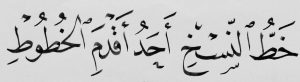 خَطُّ النَّسْخِ أَحَدُ أَقْدَمِ الْخُطُوطِ